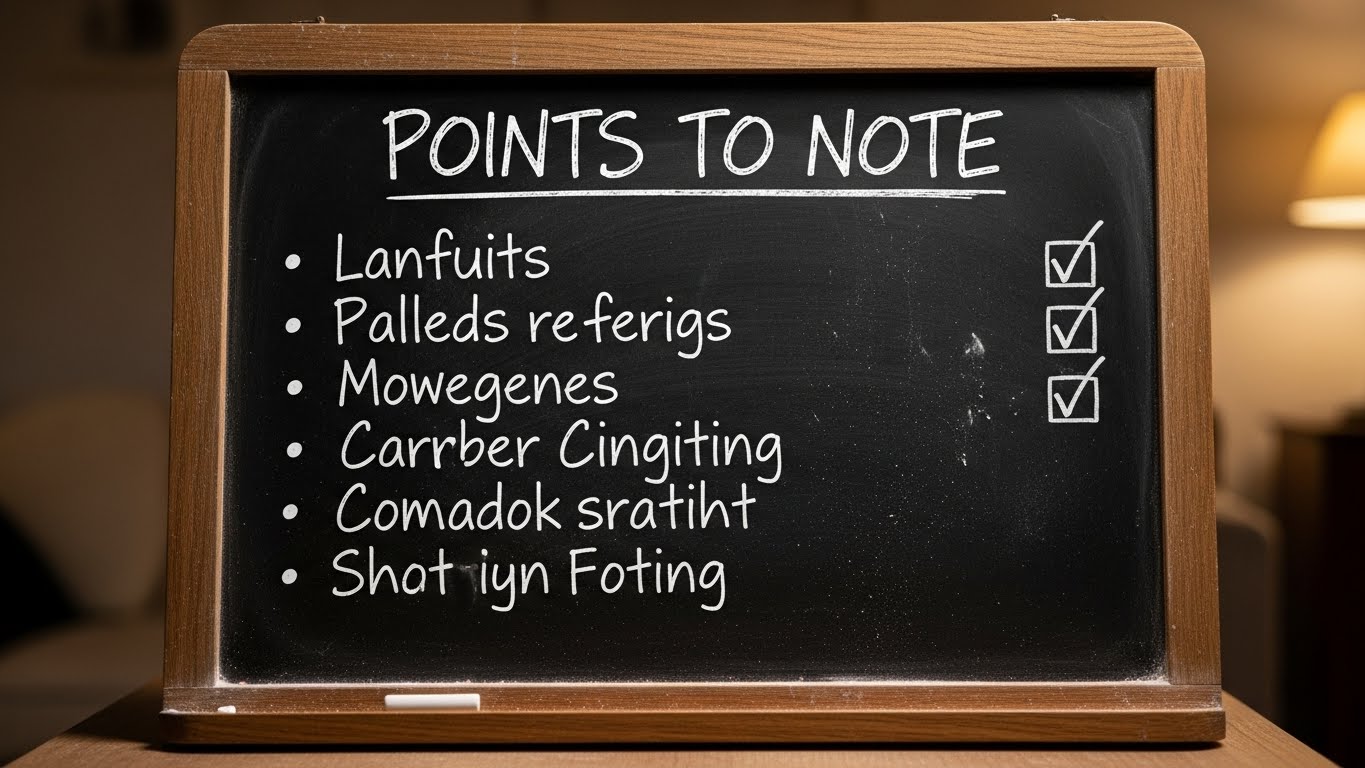 POINTS TO NOTE
• Lanfuits
• Palleds referigs
• Mowegenes
• Carrber Cingiting
• Comadok sratiht
• Shat iyn Foting